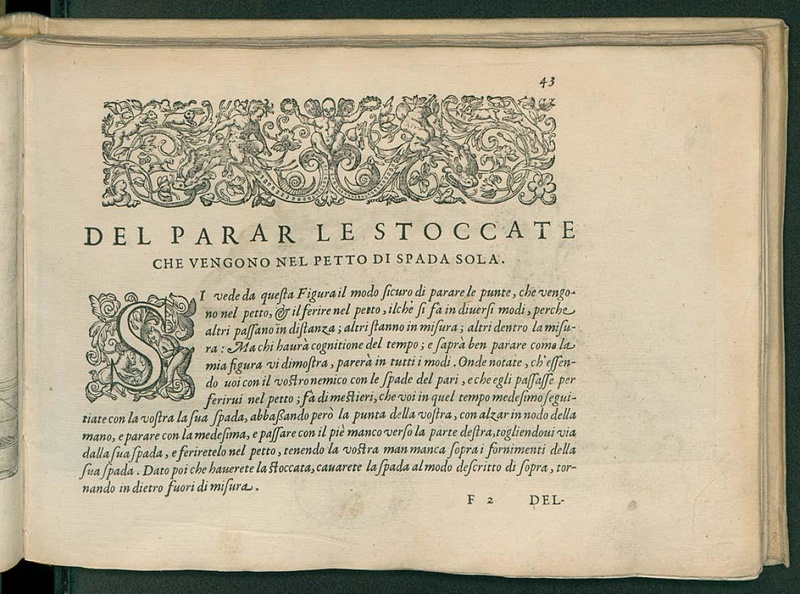 43
DEL PARAR LE STOCCATE
CHE VENGONO NEL PETTO DI SPADA SOLA.
SI vede da queſta Figura il modo ſicuro di parare le punte, che vengo-
no nel petto, & il ferire nel petto, ilchè ſi fa in diverſi modi, perche
altri paſſano in diſtanza; altri ſtanno in miſura; altri dentro la miſu-
ra: Ma chi haurà cognitione del tempo; e ſaprà ben parare come la
mia figura vi dimoſtra, parerà in tutti i modi. Onde notate, ch'eſſen-
do uoi con il voſtro nemico con le ſpade del pari, e che egli paſſaſſe per
ferirui nel petto; fà di meſtieri, che voi in quel tempo medeſimo ſegui-
tiate con la voſtra la ſua ſpada, abbaßando però la punta della voſtra, con alzar in nodo della
mano, e parare con la medeſima, e paſſare con il piè manco verſo la parte deſtra, togliendoui via
dalla ſua ſpada, e feriretelo nel petto, tenendo la voſtra man manca ſopra i fornimenti della
ſua ſpada. Dato poi che hauerete la ſtoccata, cauarete la ſpada al modo deſcritto di ſopra, tor-
nando in dietro fuori di miſura.
F 2 DEL-